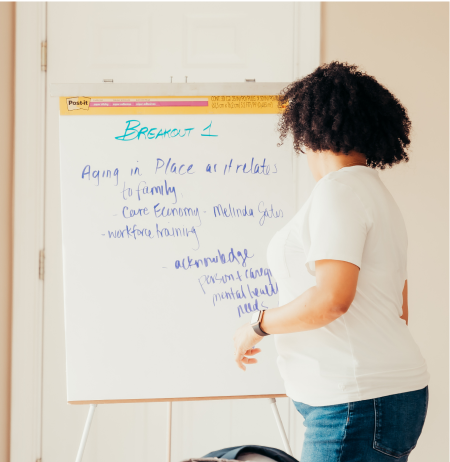 Post-it
BREAKOUT 1
Aging in Place as it relates
to family
- Care Economy - Melinda Gates
- workforce training
- acknowledge
person +
mental health
needs